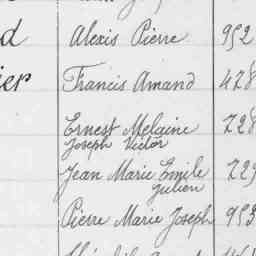 Alexis Pierre 952
Francis Amand 478
Ernest Melaine 728
Joseph Victor
Jean Marie Emile 729
Julien
Pierre Marie Joseph 953